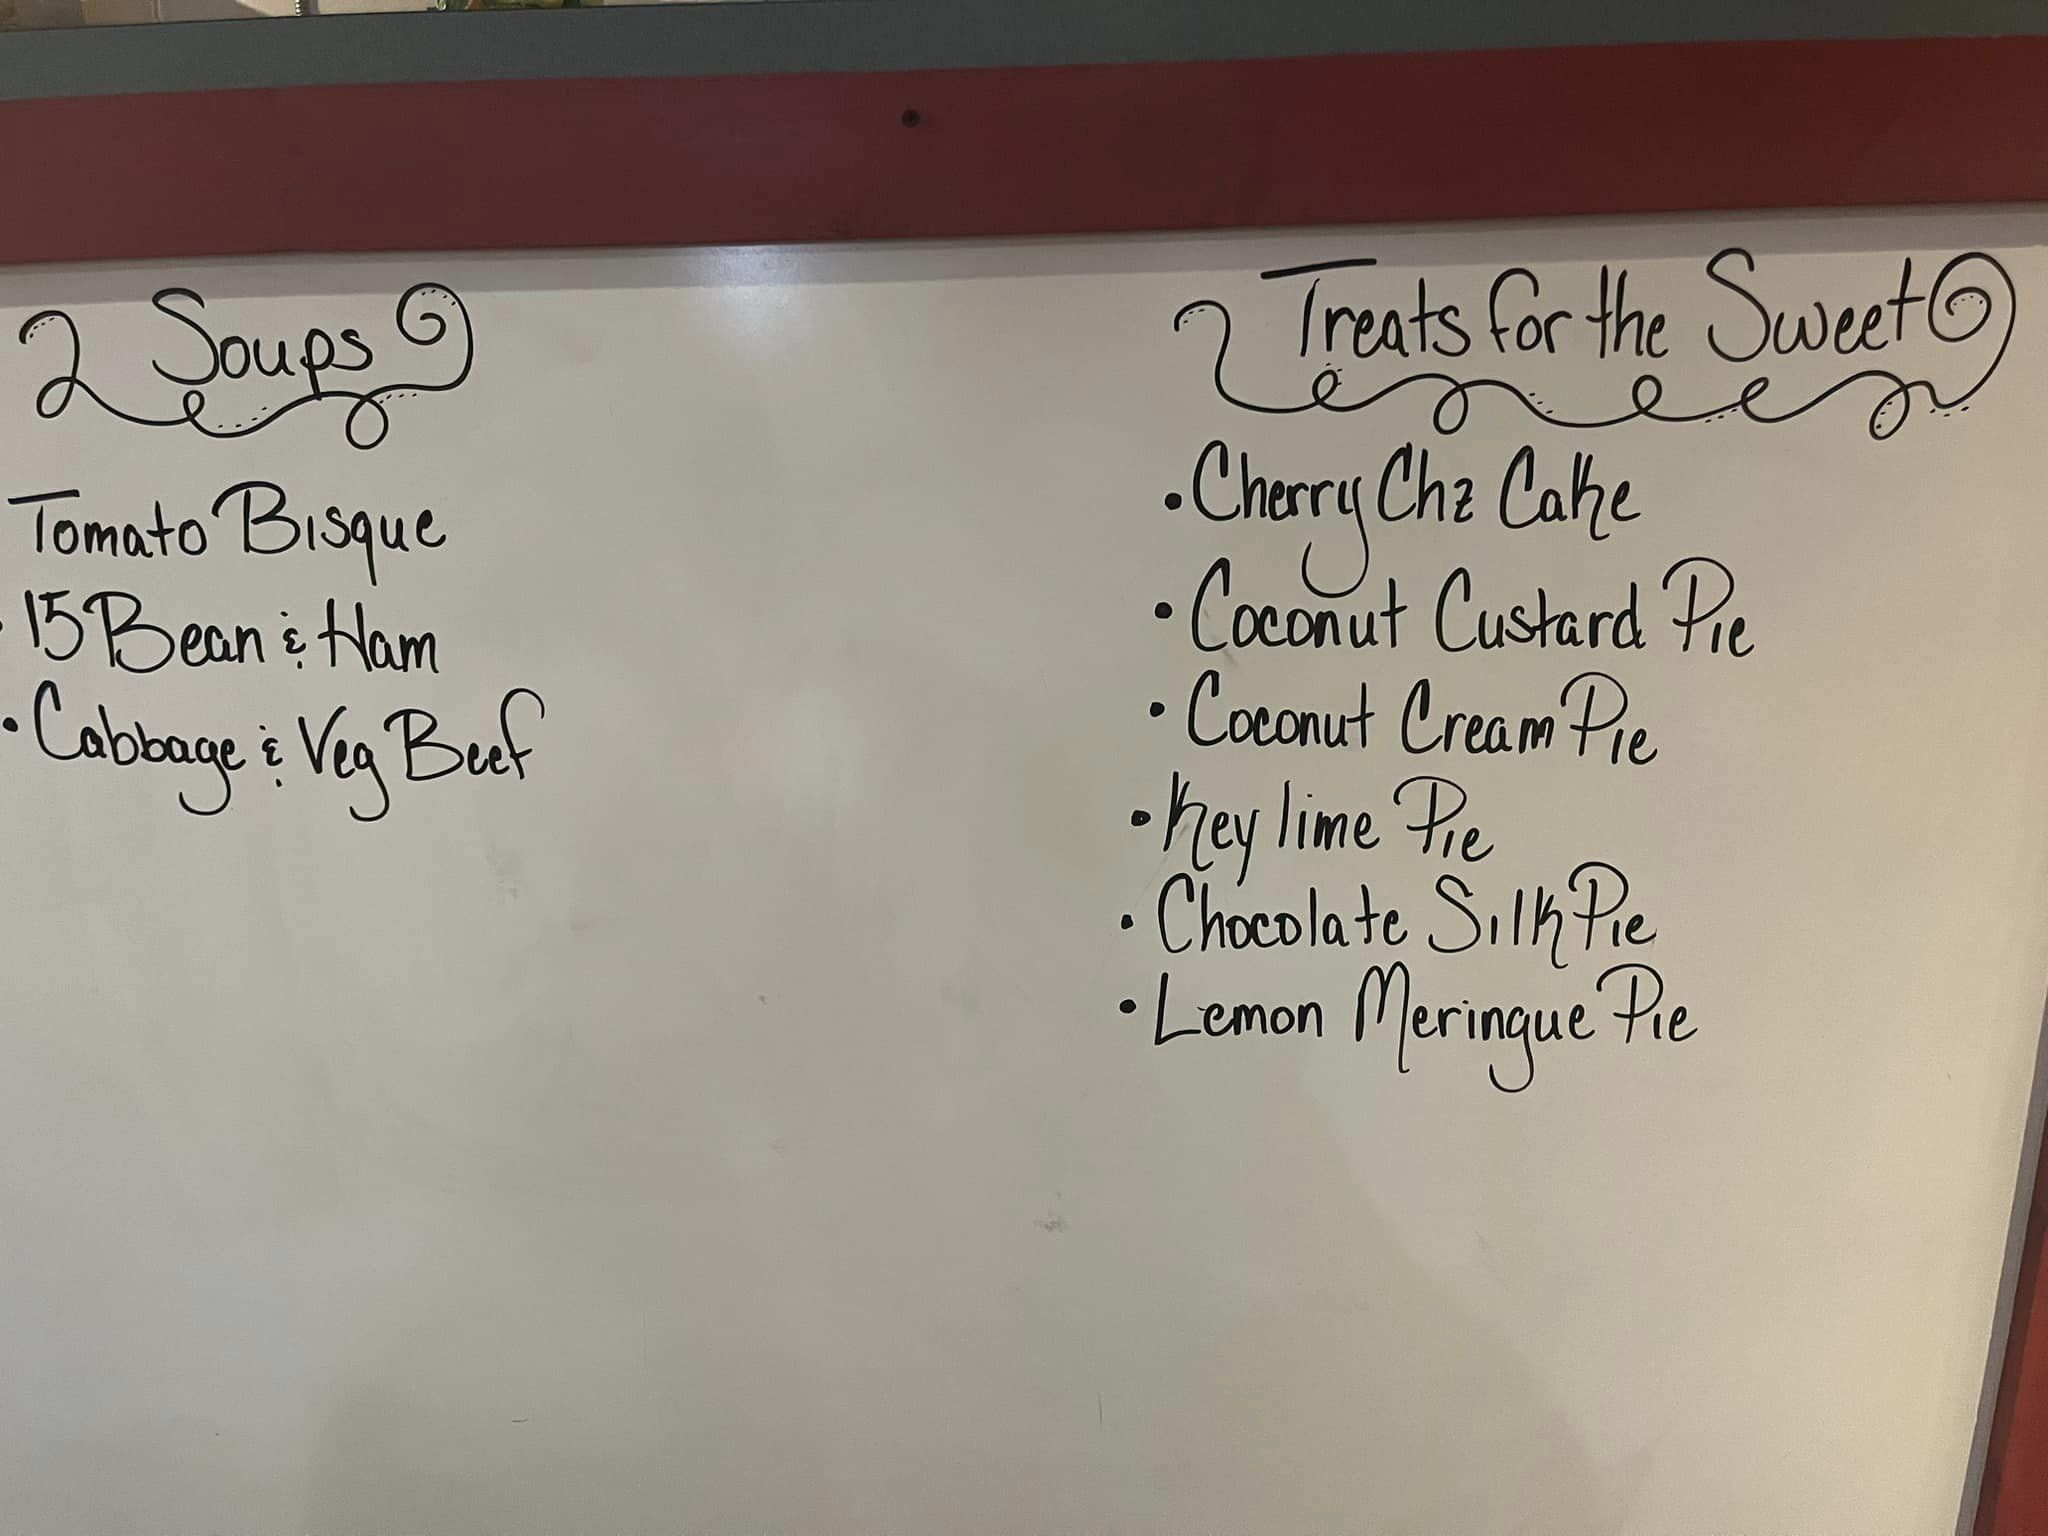 Soups
Tomato Bisque
• 15 Bean & Ham
• Cabbage & Veg Beef
Treats for the Sweet
• Cherry Chz Cake
• Coconut Custard Pie
• Coconut Cream Pie
• Key lime Pie
• Chocolate Silk Pie
• Lemon Meringue Pie